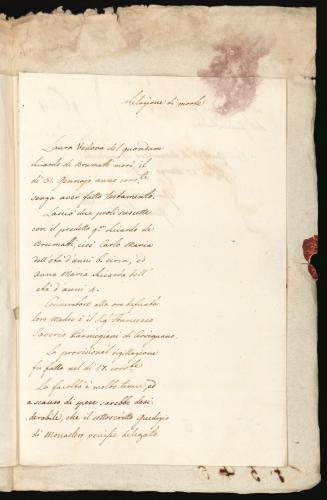 Relazione di morte
Laura Vedova del quondam
Licardo de Brumatti morì il
dì 31. Gennajo anno corr.te
senza aver fatto testamento.
Lasciò due proli suscette
con il predetto q.m Licardo de
Brumatti, cioè Carlo Maria
dell'età d'anni 6. circa, ed
Anna Maria Licarda dell'
età d'anni 4.
Curatore alla ora defunta
loro Madre è il Sig.r Francesco
Saverio Parmegiani di Cervignano.
La provisional sigillazione
fu fatta nel dì 17. corr.te
La facoltà è molto tenue, ed
a scanso di spese sarebbe desi-
derabile, che il sottoscritto Giudizio
di Monastero venisse delegato